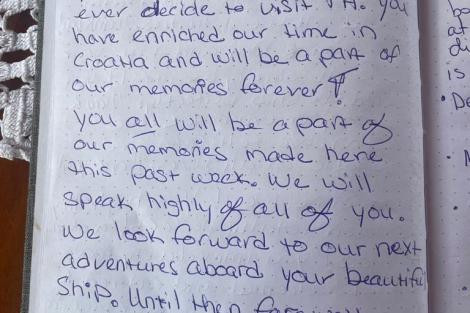 ever decide to visit PA. You
have enriched our time in
Croatia and will be a part of
our memories forever!
you all will be a part of
our memories made here
this past week. We will
speak highly of all of you.
We look forward to our next
adventures aboard your beautiful
Ship. Until then farewell
at
is